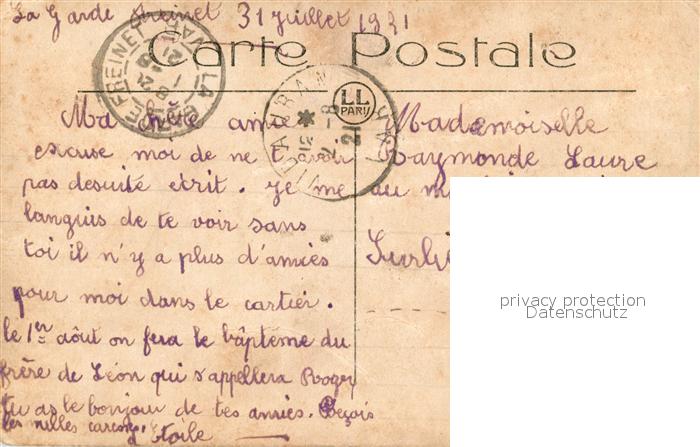 La Garde Freinet 31 Juillet 1921
Carte Postale
LA GARDE FREINET
VAR
LL
PARIS
VIDAUBAN
VAR
Ma chère amie
excuse moi de ne t'avoir
pas desuite écrit. je me
languis de te voir sans
toi il n'y a plus d'amies
pour moi dans le cartier.
le 1er aôut on fera le bâpteme du
frère de Léon qui s'appellera Rogey
tu as le bonjour de tes amies. Reçois
les milles caresses,
étoile
Mademoiselle
Raymonde Laure
au
privacy protection
Datenschutz